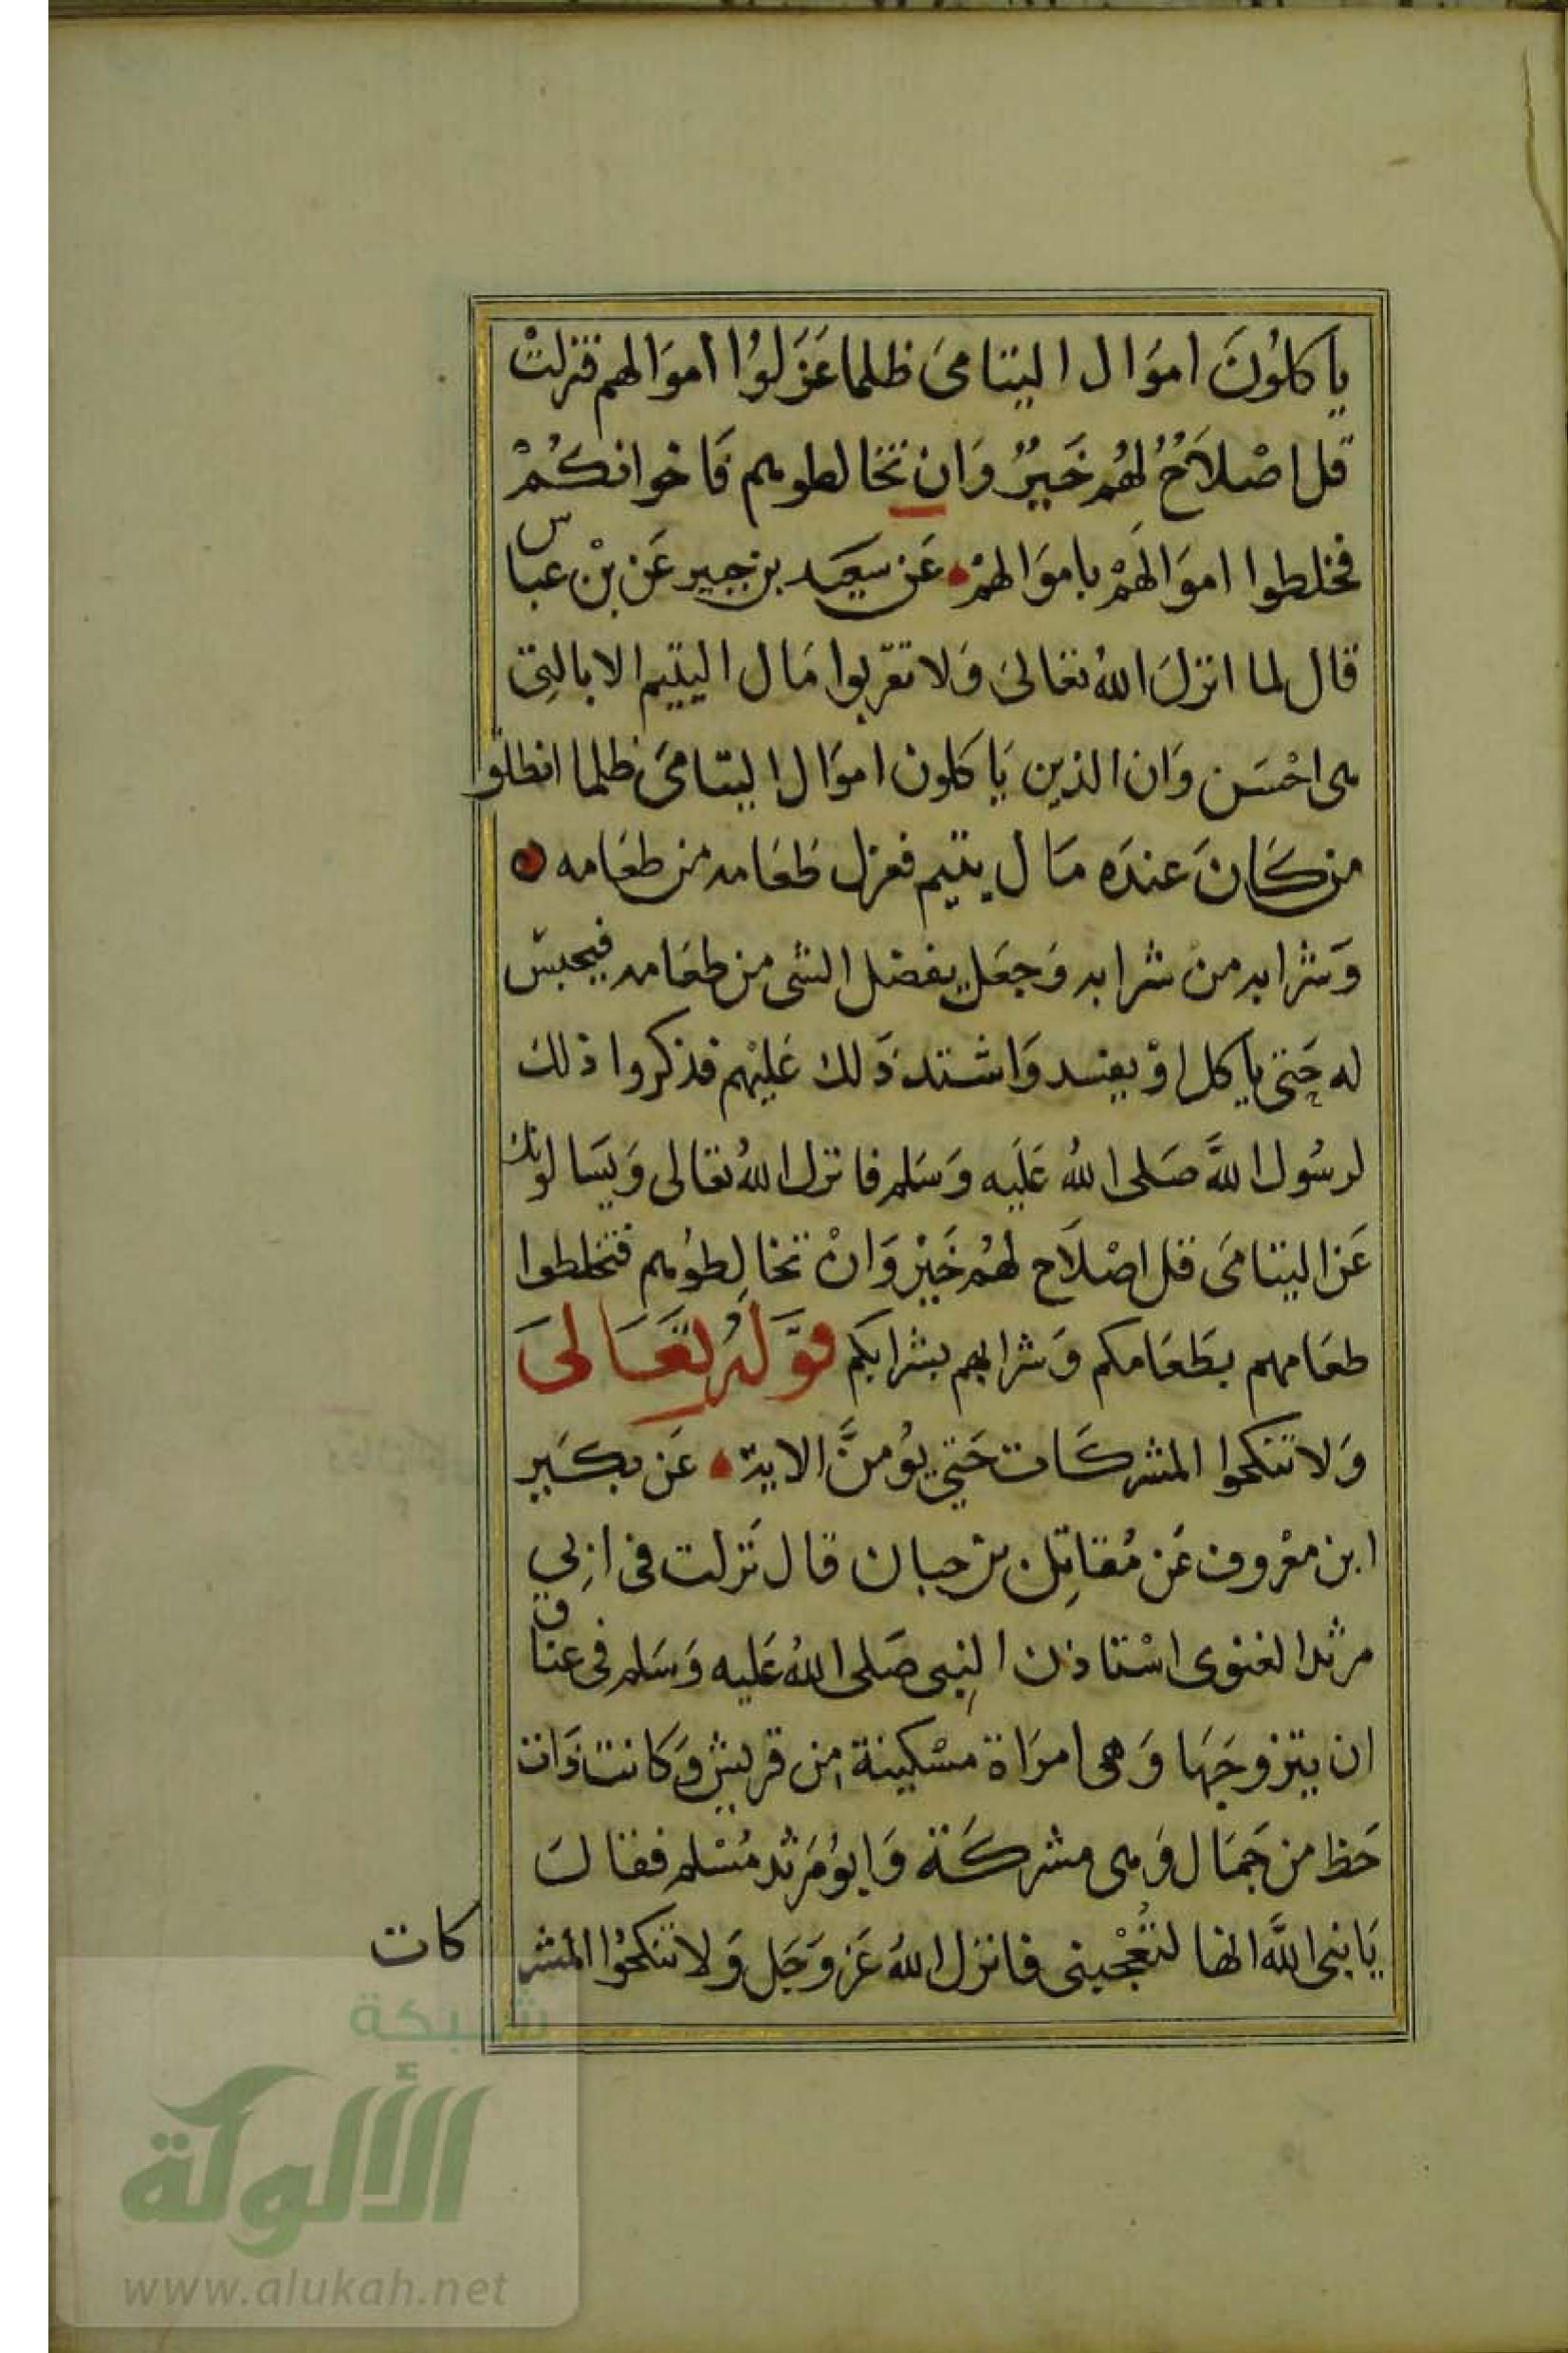 ياكلُونَ اموَال اليتامىَ ظلما عَزَلوُا اموَالهم فنزلتْ
قل اصْلاَحٌ لهُم خَيرٌ وَان تخالطوهم فَاخوانكُمْ
فخلطوا اموَالهَمْ باموَالهمْ عَن سَعيَد بن جبير عَن بْن عباس
قال لما انزلَ اللهُ تعَالىَ وَلا تقرَبوا مَال اليتيم الا بالتِى
هى احْسَن وَان الذين يَاكلون اموَال اليتامىَ ظلما انطلقوا
من كَانَ عندَه مَال يتيم فعزل طَعَامه من طعَامه ه
وَشرابه من شرابه وَجعَل يفضل الشئ من طعَامه فيحبس
له حَتى ياكل اوْ يفسد وَاشتد ذَلك عَليْهم فذكروا ذلك
لرسُول اللهَّ صَلى اللهُ عَليَه وَسَلم فانزل اللهُ تعَالى وَيسَالونك
عَن اليتامىَ قل اصْلاَح لهُم خَيْر وَانْ تخالِطوُهم فتخلطوا
طعَامهم بطَعَامكم وَشرابهم بشرابكم قوَّلهُ تعَالىَ
وَلا تنكحوا المشركَات حَتي يوُمنَّ الاية عَن بكَير
ابن معْروف عَن مُقاتِل بن حبان قال نَزلت فى ابِي
مرثد الغنوى اسْتاذن النبِى صَلى اللهُ عَليه وَسَلم فى عناق
ان يتزوجَهَا وَهى امرَاة مسْكينة من قريش وَكانت ذَات
حَظ من جَمَال وَهى مشركَة وَابوُ مَرثد مُسْلم فقالَ
يَا نبى اللهَّ انها لتُعْجبنى فانزل اللهُ عَز وَجَل وَلا تنكحُوا المشر
كات
شبكة
الألوكة
www.alukah.net